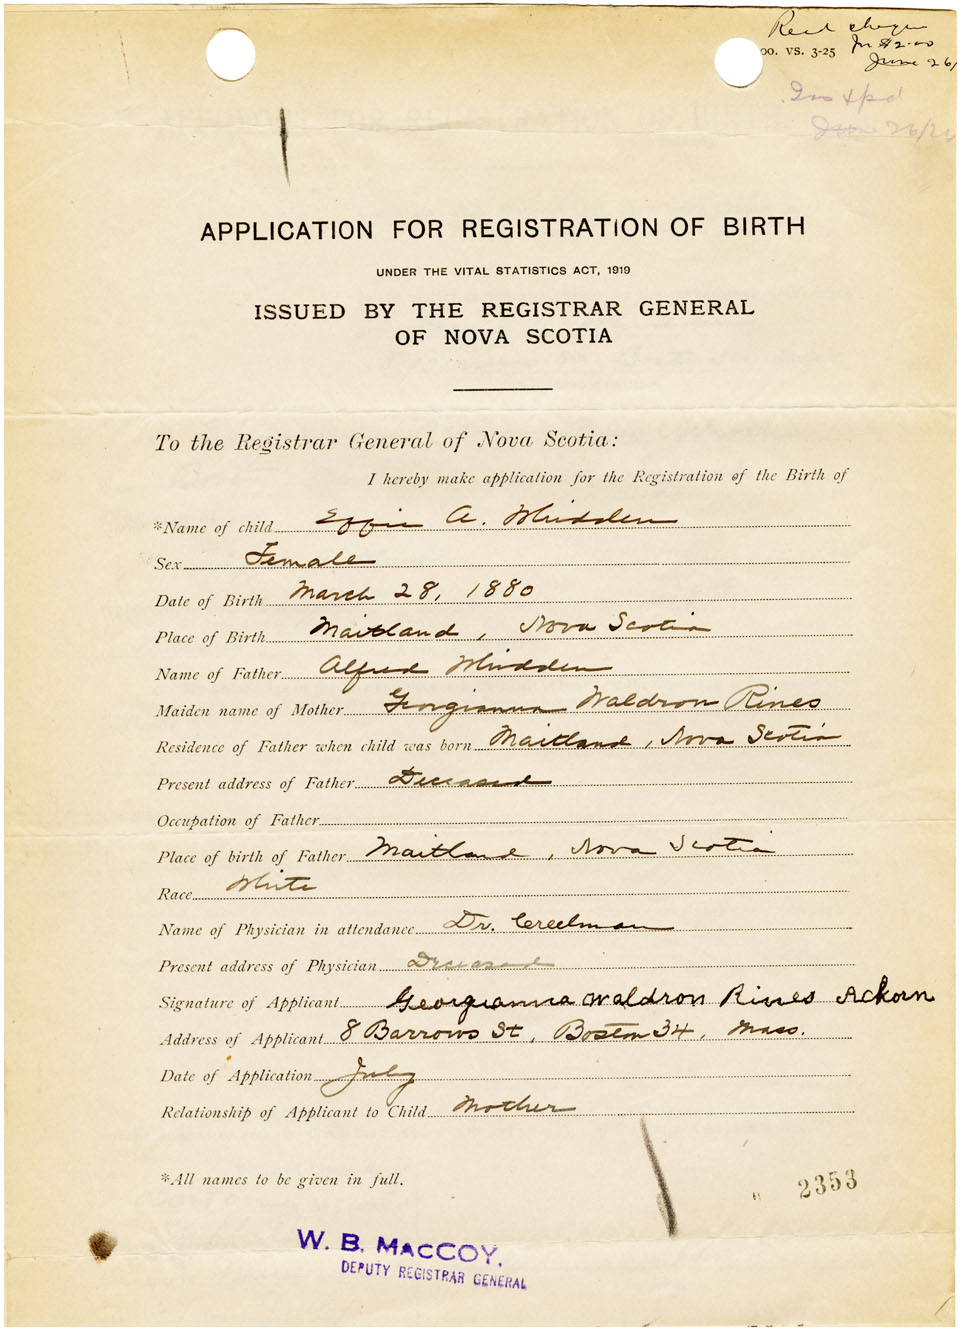 Recd cheque
for $2.00
June 26/
00. VS. 3-25
Ins & pd
June 26/26
APPLICATION FOR REGISTRATION OF BIRTH
UNDER THE VITAL STATISTICS ACT, 1919
ISSUED BY THE REGISTRAR GENERAL
OF NOVA SCOTIA
To the Registrar General of Nova Scotia:
I hereby make application for the Registration of the Birth of
*Name of child Effie A. Whidden
Sex Female
Date of Birth March 28, 1880
Place of Birth Maitland, Nova Scotia
Name of Father Alfred Whidden
Maiden name of Mother Georgianna Waldron Rines
Residence of Father when child was born Maitland, Nova Scotia
Present address of Father Deceased
Occupation of Father
Place of birth of Father Maitland, Nova Scotia
Race White
Name of Physician in attendance Dr. Creelman
Present address of Physician Deceased
Signature of Applicant Georgianna Waldron Rines Ackorn
Address of Applicant 8 Barrows St, Boston 34, Mass.
Date of Application July
Relationship of Applicant to Child Mother
*All names to be given in full.
2353
W. B. MACCOY.
DEPUTY REGISTRAR GENERAL